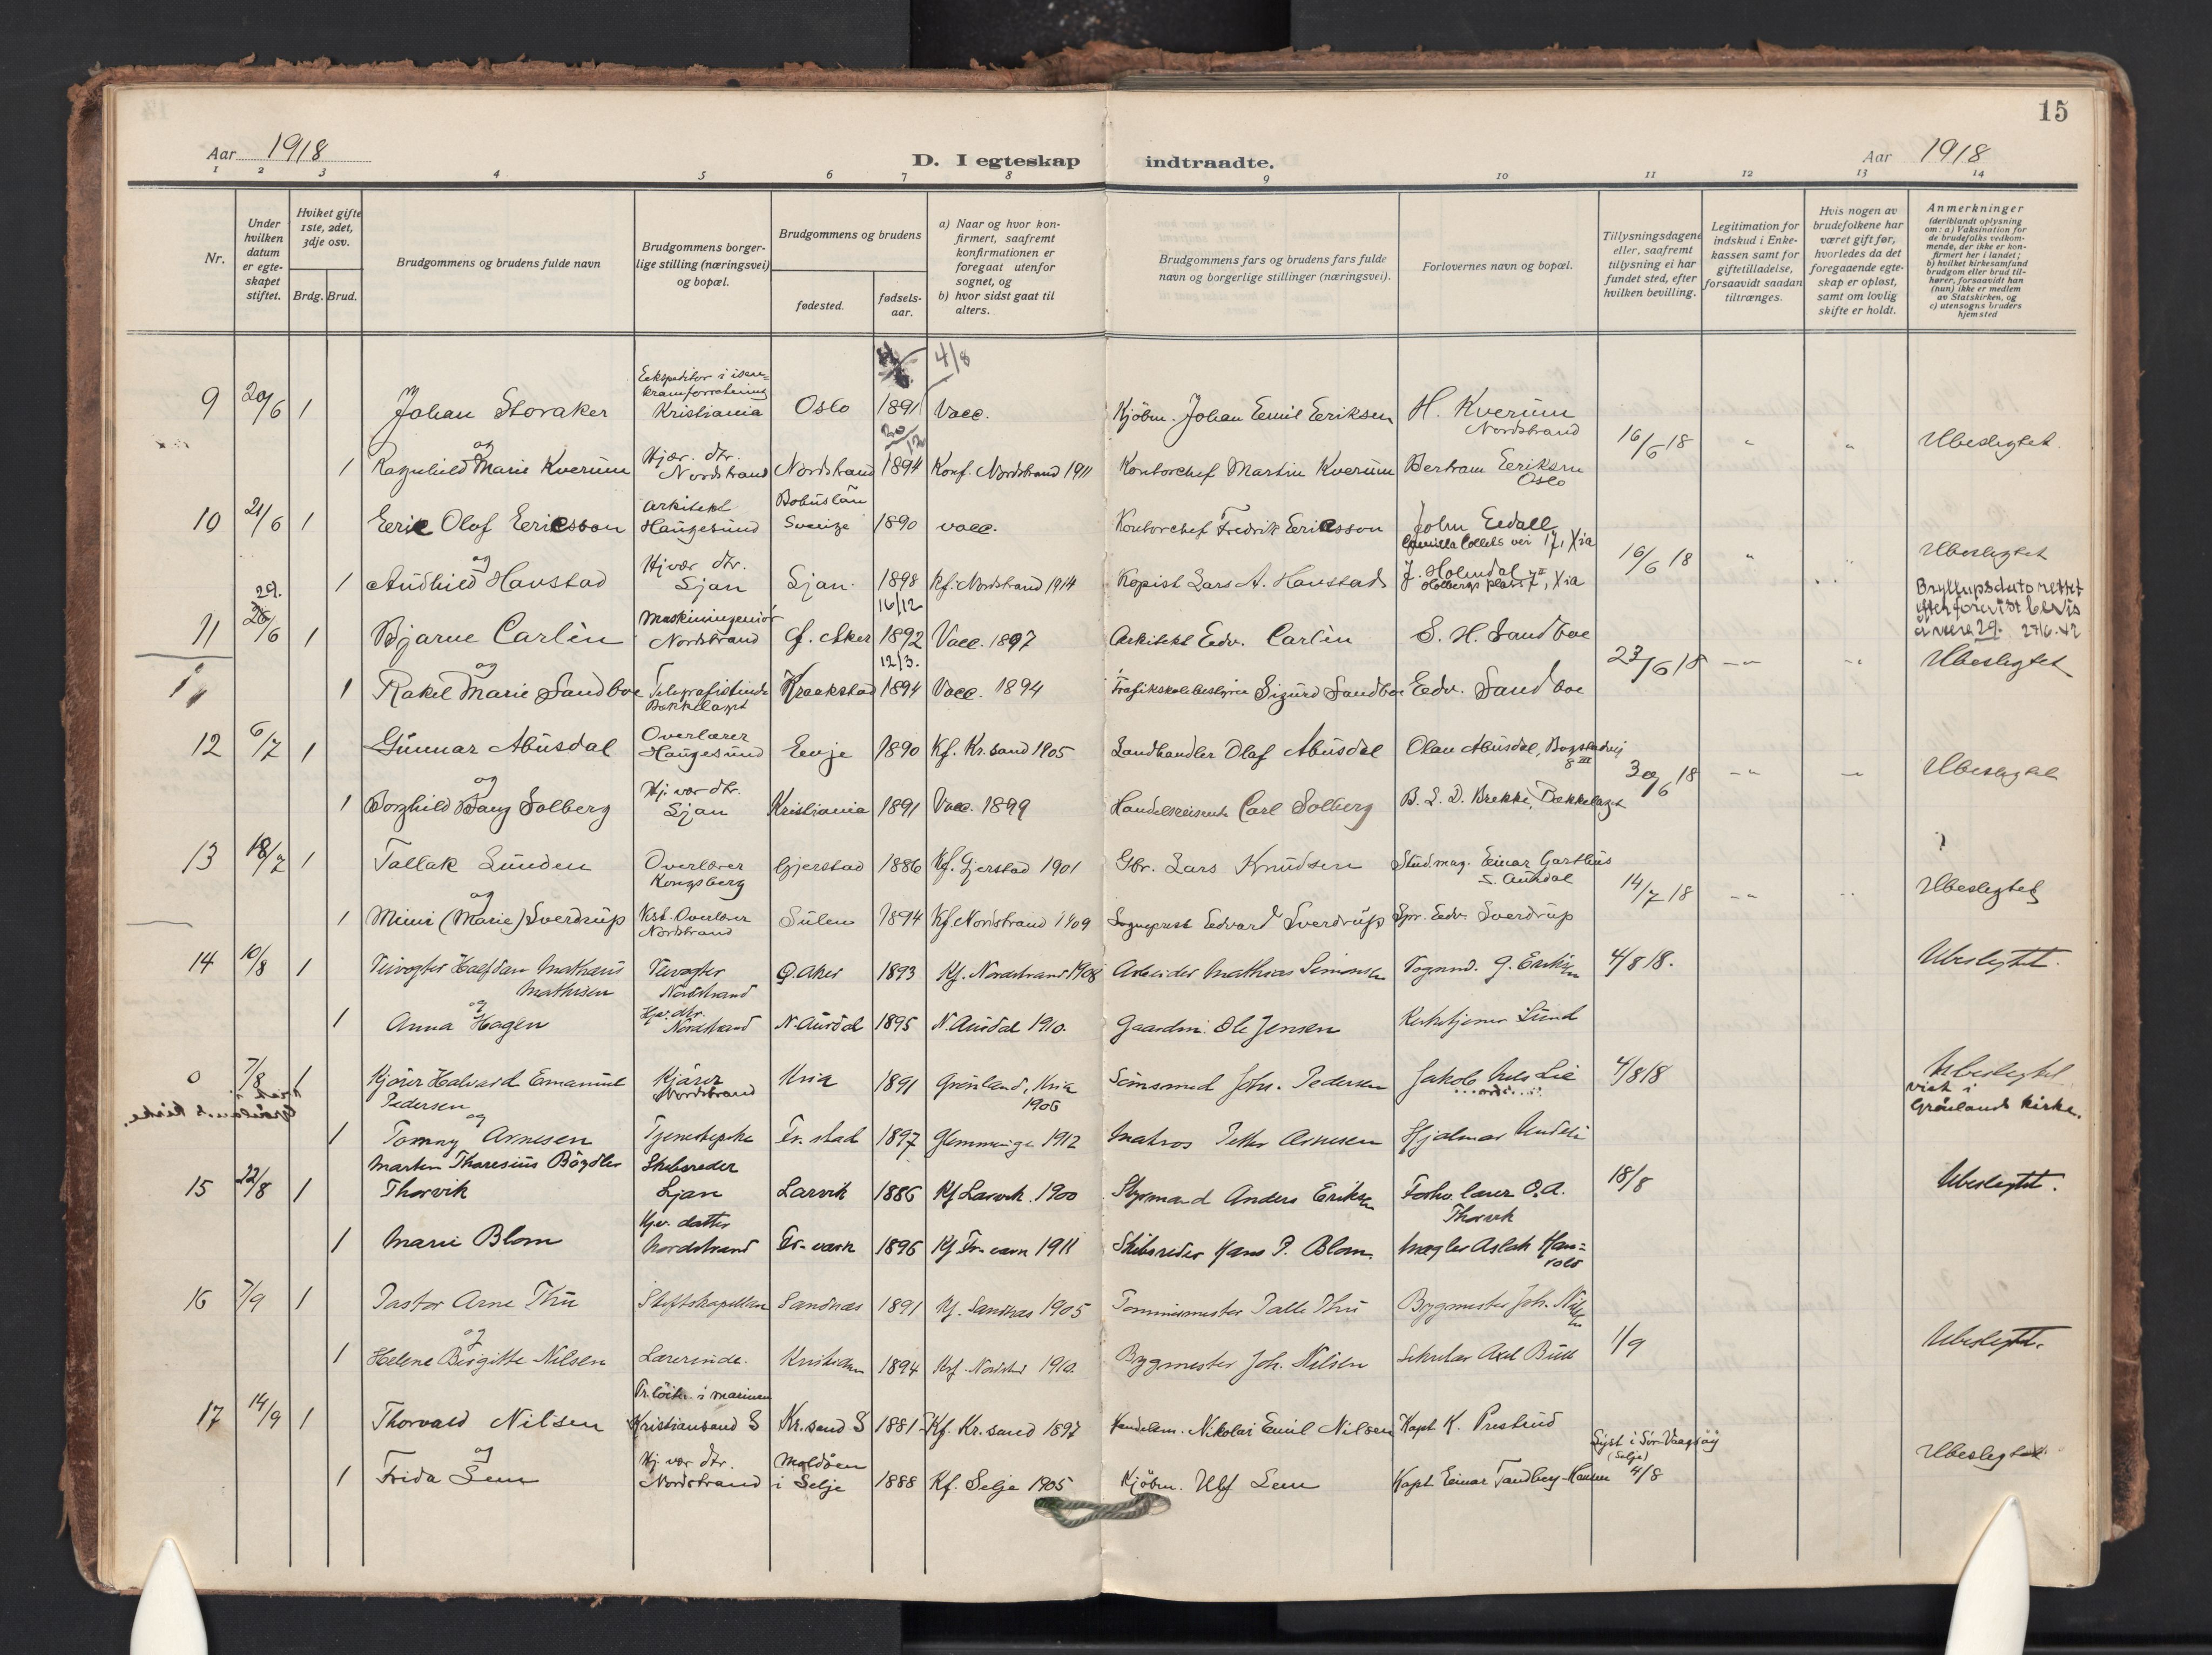 15
Aar 1918
D. I egteskap indtraadte.
Aar 1918
1 2 3 4 5 6 7 8 9 10 11 12 13 14
Nr.
Under hvilken datum er egteskapet stiftet.
Hviket gifte 1ste, 2det, 3dje osv.
Brdg. Brud.
Brudgommens og brudens fulde navn
Brudgommens borgerlige stilling (næringsvei) og bopæl.
Brudgommens og brudens
fødested.
fødselsaar.
a) Naar og hvor konfirmert, saafremt konfirmationen er foregaat utenfor sognet, og
b) hvor sidst gaat til alters.
Brudgommens fars og brudens fars fulde navn og borgerlige stillinger (næringsvei).
Forlovernes navn og bopæl.
Tillysningsdagene eller, saafremt tillysning ei har fundet sted, efter hvilken bevilling.
Legitimation for indskud i Enkekassen samt for giftetilladelse, forsaavidt saadan tiltrænges.
Hvis nogen av brudefolkene har været gift før, hvorledes da det foregaaende egteskap er opløst, samt om lovlig skifte er holdt.
Anmerkninger (deriblandt oplysning om: a) Vaksination for de brudefolks vedkommende, der ikke er konfirmert her i landet; b) hvilket kirkesamfund brudgom eller brud tilhører, forsaavidt han (hun) ikke er medlem av Statskirken, og c) utensogns bruders hjemsted
4/8
9 20/6 1 Johan Storaker Ekspeditør i isenkramforretning Kristiania Oslo 1891 Vacc. Kjøbm. Johan Emil Eriksen H. Kverum Nordstrand
og
20/12
1 Ragnhild Marie Kverum Hjv. dtr. Nordstrand Nordstrand 1894 Konf. Nordstrand 1911 Kontorchef Martin Kverum Bertram Eriksen Oslo 16/6 18 Ubeslegtet
10 21/6 1 Eric Olof Ericsson Arkitekt Haugesund Bohuslän Sverige 1890 vacc. Kontorchef Fredrik Ericsson John Eedall Camilla Colletts vei 17, Xia
og
1 Audhild Haustad Hj. vær. dtr. Ljan Ljan 1898 Kf. Nordstrand 1914 Kopist Lars A. Haustad J. Holmdal Holbergs plass 7 II, Xia 16/6 18 Ubeslegtet
29.
11 26/6 1 Bjarne Carlèn Maskiningeniör Nordstrand Ø. Aker 16/12 1892 Vacc. 1897 Arkitekt Edv. Carlèn S. H. Sandboe
Bryllupsdato rettet efter forevist bevis å være 29. 27/6.42
og
1 Rakel Marie Sandboe Telegrafistinde Bækkelaget Kraakstad 12/3. 1894 Vacc. 1894 Trafikskolebestyrer Sigurd Sandboe Edv. Sandboe 23/6 18 Ubeslegtet
12 6/7 1 Gunnar Abusdal Overlærer Haugesund Evje 1890 Kf. Kr.sand 1905 Landhandler Olaf Abusdal Olav Abusdal, Bogstadvei 8 III
og
1 Borghild Bang Solberg Hj. vær dtr. Ljan Kristiania 1891 Vacc. 1899 Handelsreisende Carl Solberg B. L. D. Brekke, Bækkelaget 30/6 18 Ubeslegtet
13 18/7 1 Tallak Lunden Overlærer Kongsberg Gjerstad 1886 Kf. Gjerstad 1901 Gbr. Lars Knudsen Stud. mag. Einar Garthus S. Aurdal
og
1 Mimi (Marie) Sverdrup Kst. Overlærer Nordstrand Sulen 1894 Kf. Nordstrand 1909 Sogneprest Edvard Sverdrup Spr. Edv. Sverdrup 14/7 18 Ubeslegtet
14 10/8 1 Halfdan Mathæus Mathisen Nordstrand Ø. Aker 1893 Kf. Nordstrand 1908 Arbeider Mathias Simonsen Vognmd. G. Eriksen 4/8 18. Ubeslegtet.
og
1 Anna Hagen Hjv. dtr. Nordstrand N. Aurdal 1895 N. Aurdal 1910. Gaardm. Ole Jensen Kirketjener Lund
0 7/8 1 Kjører Halvard Emanuel Pedersen Kjører Nordstrand Kria 1891 Grønland, Kria 1906 Johs. Pedersen Jakob Lie 4/8 18 Ubeslegtet viet i Grönlands kirke.
og
viet i Grönlands kirke.
1 Tommy Arnesen Tjenestepike Fr. stad 1897 Glemminge 1912 Matros Petter Arnesen Hjalmar
15 22/8 1 Marten Tharesius Bögdler Thorvik Skibsreder Ljan Larvik 1886 Kf Larvik 1900 Styrmand Anders Eriksen Forhv. lærer O. A. Thorvik 18/8 Ubeslegtet.
1 Marie Blom Hjv. datter Nordstrand Fr. værn 1896 Kf Fr. værn 1911 Skibsreder Hans P. Blom. Mægler Aslak
16 7/9 1 Pastor Arne Thu Stiftskapellan Sandnæs 1891 Kf. Sandnæs 1905 Tømmermester Palle Thu Bygmester Joh. Nilsen
og
1 Helene Birgitte Nilsen Lærerinde. Kristiania 1894 Kf. Nordstrd 1910. Bygmester Joh. Nilsen Sekretær Axel Bull 1/9 Ubeslegtet.
17 14/9 1 Thorvald Nilsen Pr. löitn. i marinen Kristiansand S Kr.sand S 1881 Kf. Kr.sand 1897 Handelsm. Nikolai Emil Nilsen Kapt K. Prestrud
og
1 Frida Sem Hj. vær dtr. Nordstrand Moldöen i Selje 1888 Kf. Selje 1905 Kjöbm. Ulf Sem Kapt Einar Tandberg-Hansen Lyst i Sør-Vaagsöy (Selje) 4/8 Ubeslegtet